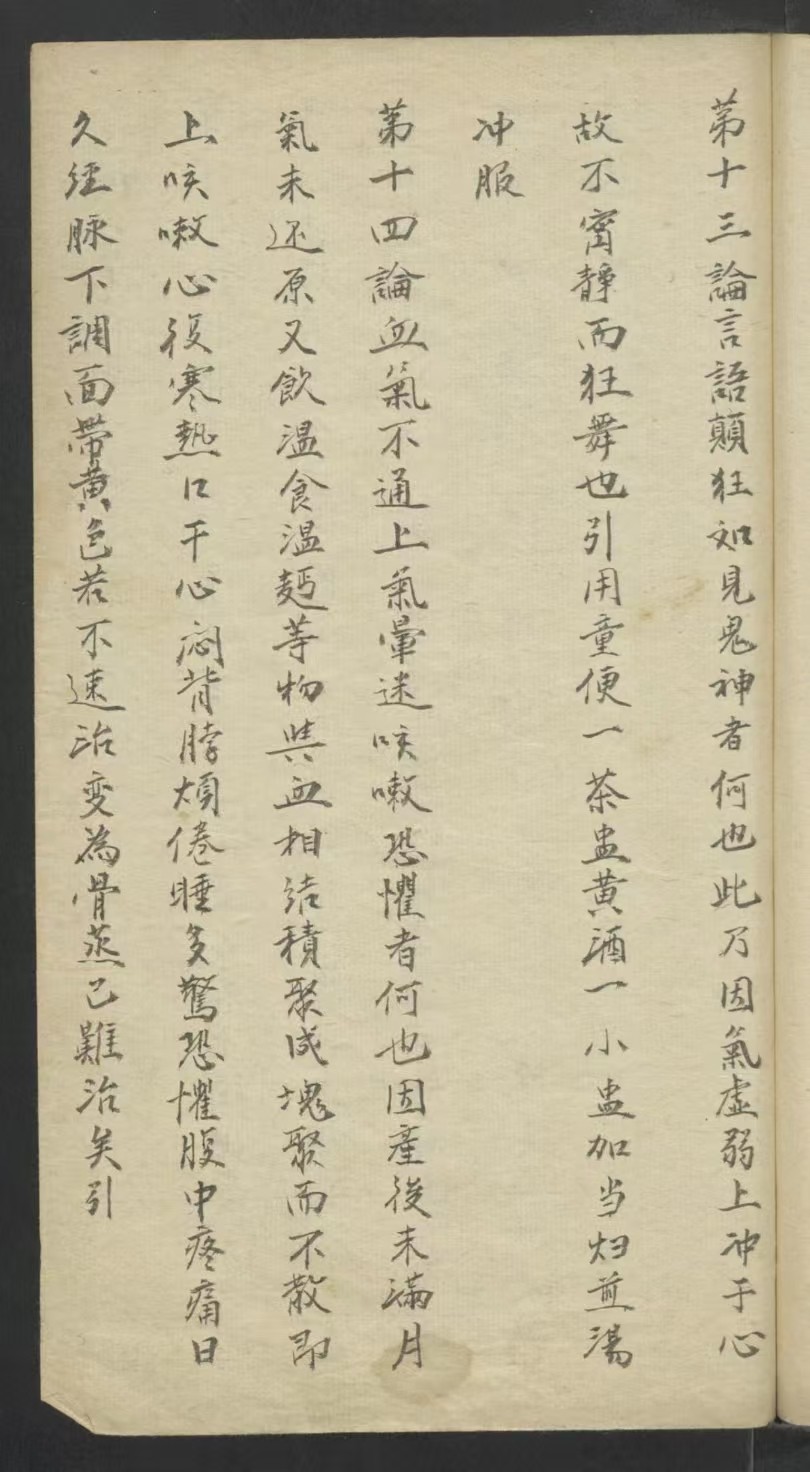 第十三論言語顛狂如見鬼神者何也此乃因氣虛弱上冲于心
故不甯靜而狂舞也引用童便一茶盅黄酒一小盅加当归煎湯
冲服
第十四論血氣不通上氣暈迷咳嗽恐懼者何也因產後未滿月
氣未还原又飲温食温麺等物與血相结積聚成塊聚而不散即
上咳嗽心復寒熱口干心闷背脖煩倦睡多驚恐懼腹中疼痛日
久经脉下調面帶黄色若不速治变為骨蒸已難治矣引